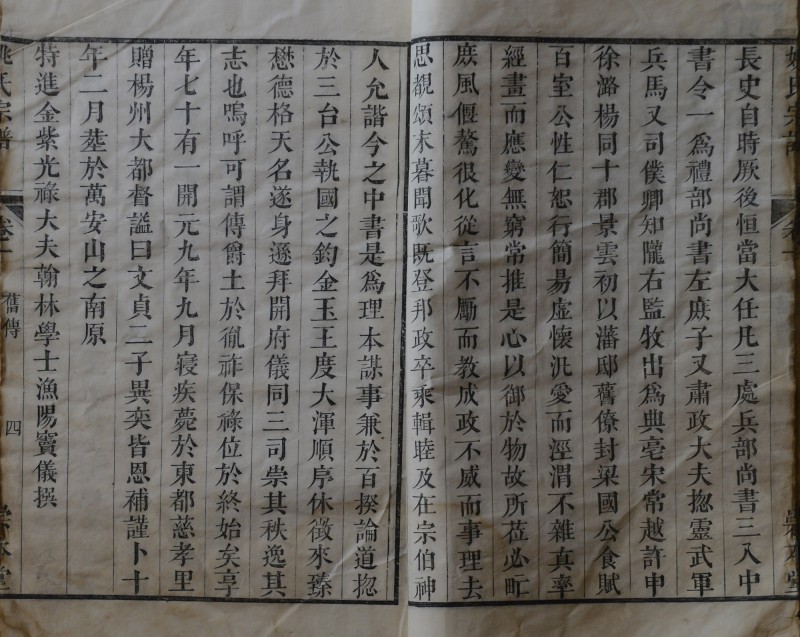 姚氏宗譜
卷一
長史自時厥後恒當大任凡三處兵部尚書三入中
書令一爲禮部尚書左庶子又肅政大夫揔靈武軍
兵馬又司僕卿知隴右監牧出爲典亳宋常越許申
徐潞楊同十郡景雲初以藩邸舊僚封梁國公食賦
百室公性仁恕行簡易虛懷汎愛而涇渭不雜真率
經畫而應變無窮常推是心以御於物故所莅必
庶風偃驁很化從言不厲而教成政不威而事理去
思覩頌末暮聞歌既登邦政卒乘輯睦及在宗伯神
人允諧今之中書是爲理本謀事兼於百揆論道揔
於三台公執國之鈞金玉王度大渾順序休徵來臻
懋德格天名遂身遜拜開府儀同三司崇其秩逸其
志也嗚呼可謂傳爵土於胤祚保祿位於終始矣享
年七十有一開元九年九月寢疾薨於東都慈孝里
贈楊州大都督謚曰文貞二子異奕皆恩補謹卜十
年二月塟於萬安山之南原
特進金紫光祿大夫翰林學士漁陽竇儀撰
姚氏宗譜
卷一
舊傳
四